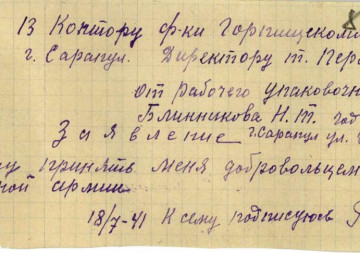 В Контору ф-ки Горпищеком
г. Сарапул. Директору т. Пер
от рабочего упаковочн
Блинникова Н. Т. год
Заявление г. Сарапул ул.
у принять меня добровольцем
ной армии
18/7-41 К сему подписуюсь Я